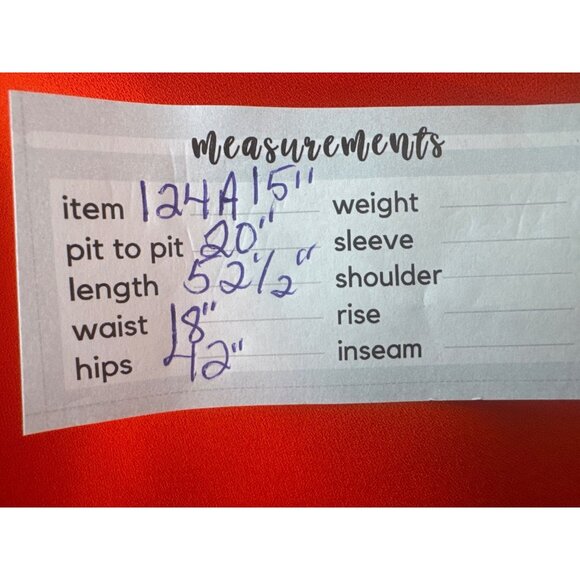 measurements
item 124A 15"
pit to pit 20"
length 52 1/2"
waist 18"
hips 42"
weight
sleeve
shoulder
rise
inseam